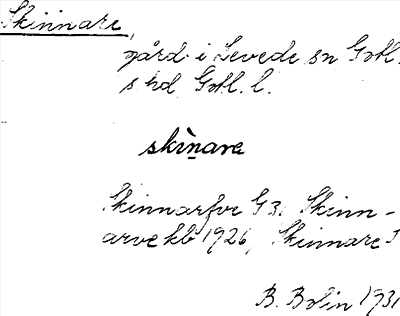 Skinnare,
gård i Levede sn Gotl.
s hd, Gotl. l.
skìn̲are
Skinnarfve G3, Skinn-
arve kb 1926, Skinnare J
B. Bolin 1931